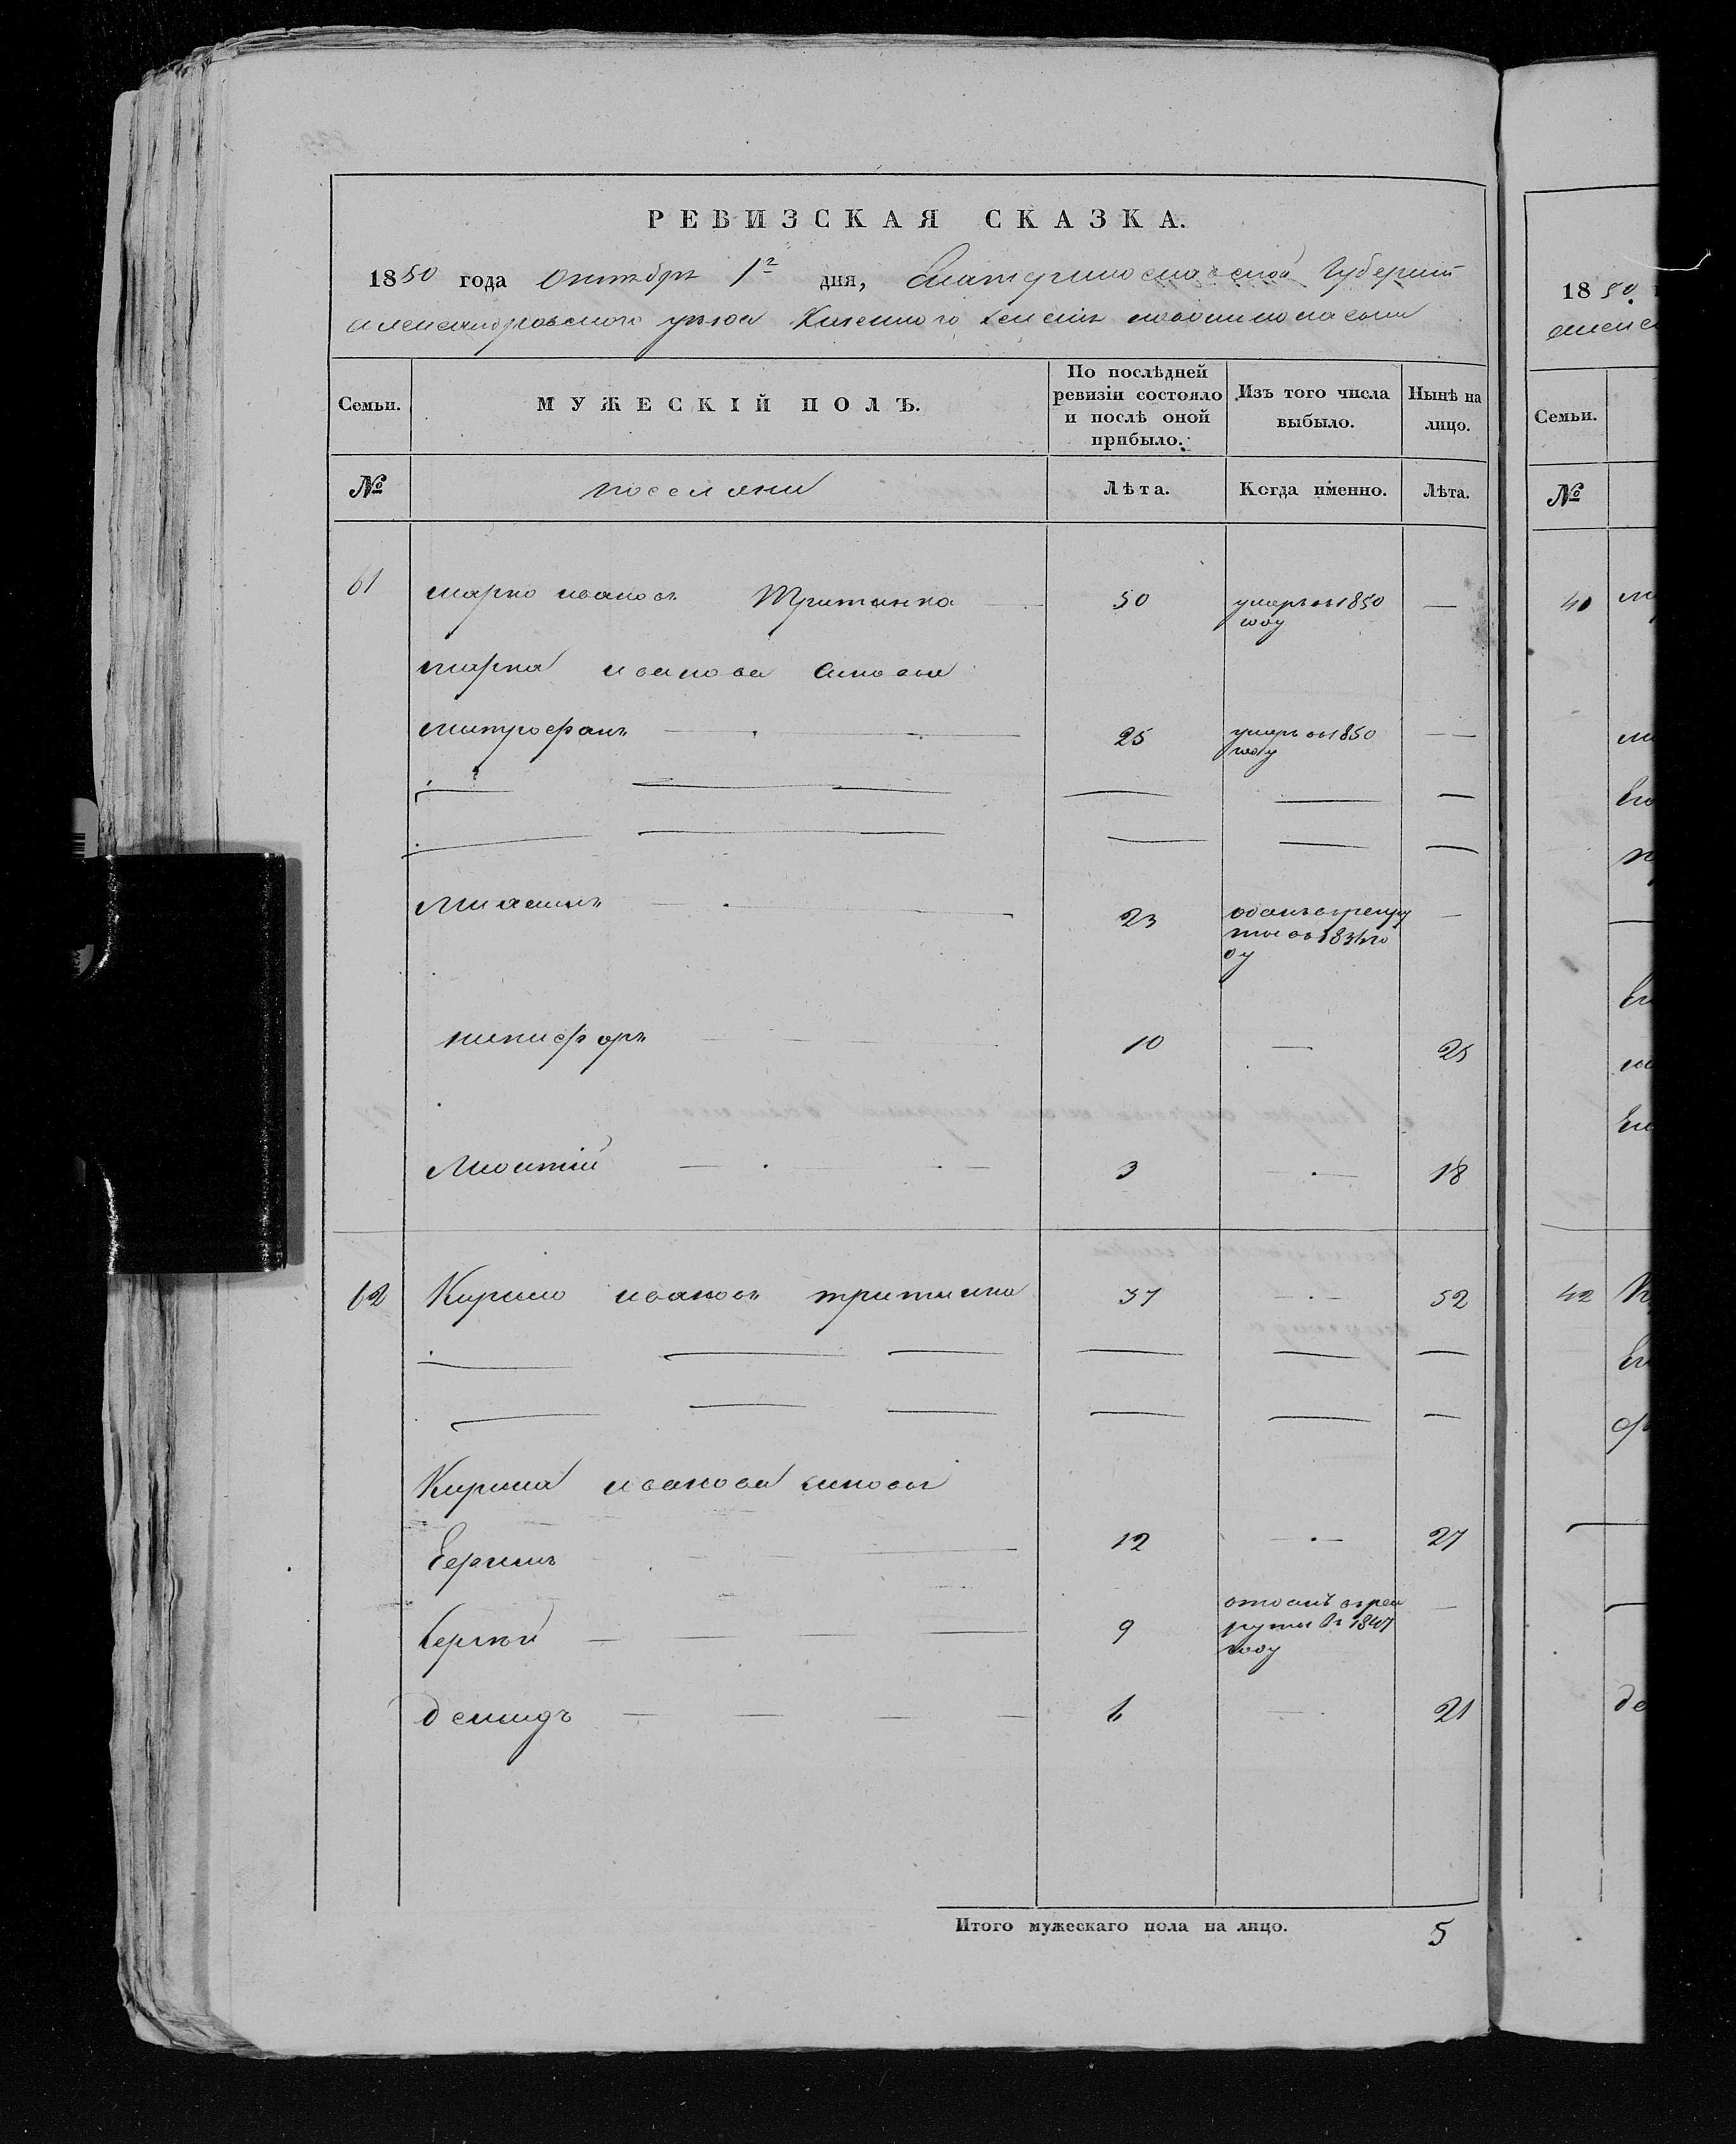 РЕВИЗСКАЯ СКАЗКА.
1850 года октября 1г дня, Екатеринославской Губерній
александровскаго уезда Казенного селенія
Семьи. МУЖЕСКІЙ ПОЛЪ. По послѣдней ревизіи состояло и послѣ оной прибыло. Изъ того числа выбыло. Нынѣ на лицо.
№ поселяни Лѣта. Когда именно. Лѣта.
61 марко ивановъ Тритинка 50 умеръ въ 1850 — 
году
марка иванова синовья
митрофанъ 25 умеръ въ 1850 —
году
23 рекру
ты въ
ду
никифоръ 10 — 25
3 — 18
62 Кирило ивановъ тритинка 37 — 52
Кирила иванова синовьи
12 — 27
Сергій 9 отданъ въ рек
руты въ 1847
году
демидъ 6 — 21
Итого мужескаго пола на лицо. 5
1850
Семьи.
№
42
де